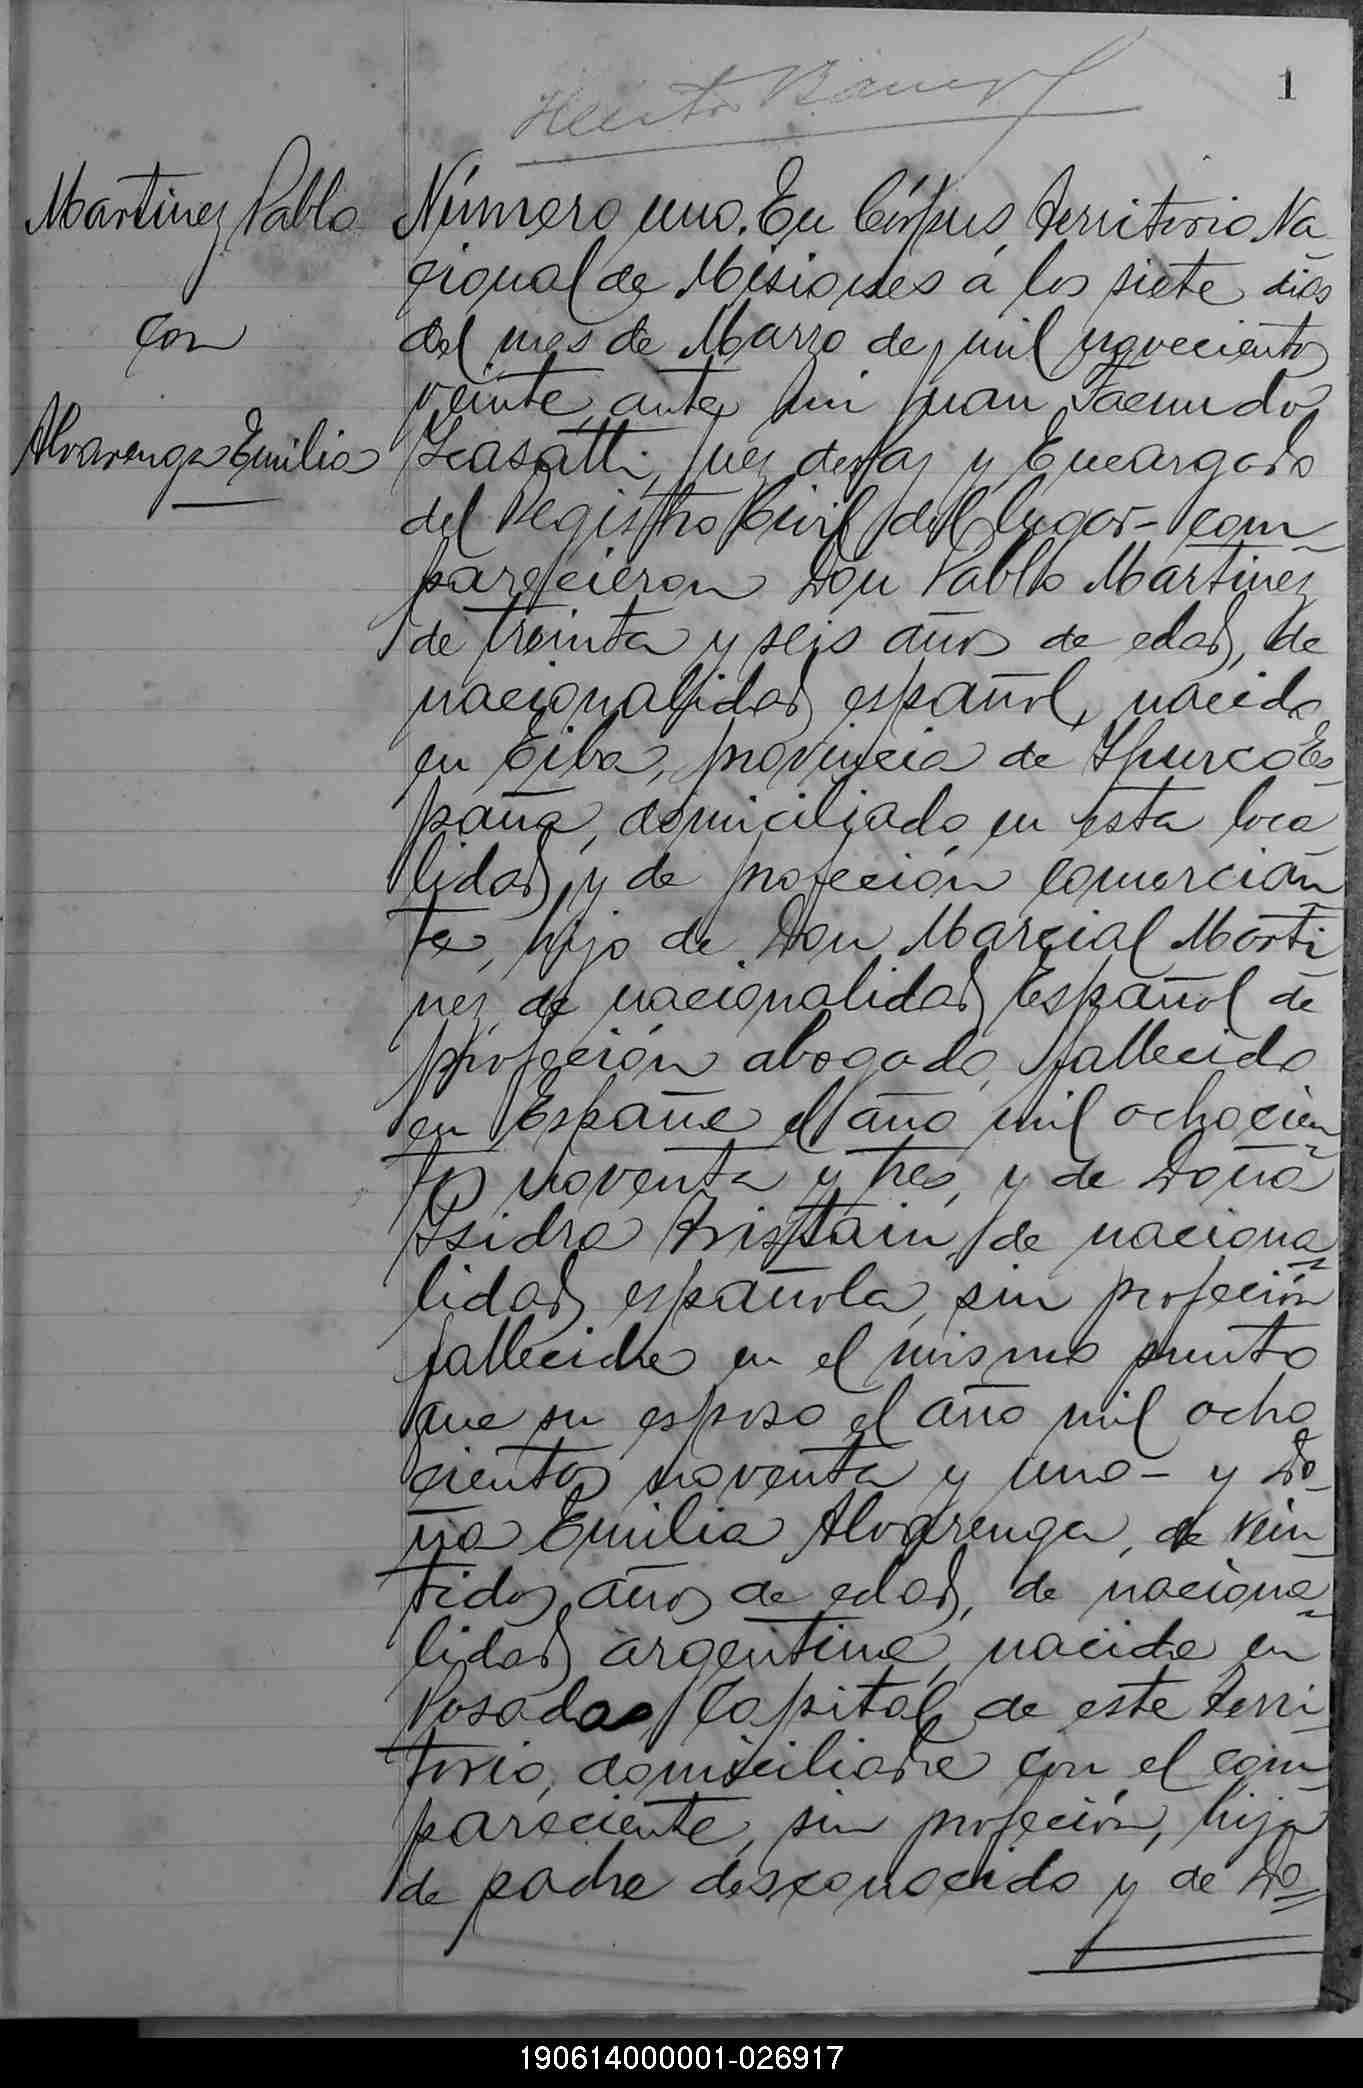 1
Martinez Pablo
con
Alvarenga Emilia
Número uno. En Córpus, Territorio Na
cional de Misiones á los siete dias
del mes de Marzo de mil novecientos
veinte, ante mi Juan Facundo
Juez de Paz y Encargado
del Registro Civil del lugar - com
parecieron Don Pablo Martinez
de treinta y seis años de edad, de
nacionalidad español, nacido
en Eiba, provincia de Es
paña, domiciliado en esta loca
lidad, y de profeción comercian
te, hijo de Don Marcial Marti
nez, de nacionalidad Español de
profeción abogado, fallecido
en España el año mil ochocien
tos noventa y tres, y de Doña
Isidra Aristain, de naciona
lidad española, sin profeción
fallecida en el mismo punto
que su esposo el año mil ocho
cientos noventa y uno - y Do
ña Emilia Alvarenga, de vein
tidos años de edad, de naciona
lidad argentina, nacida en
Posadas, Capital de este Terri
torio, domiciliada con el com
pareciente, sin profeción, hija
de padre desconocido y de Do
190614000001-026917